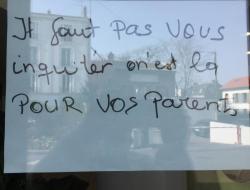 It faut pas vous
inquiter on est la
POUR VOS Parents